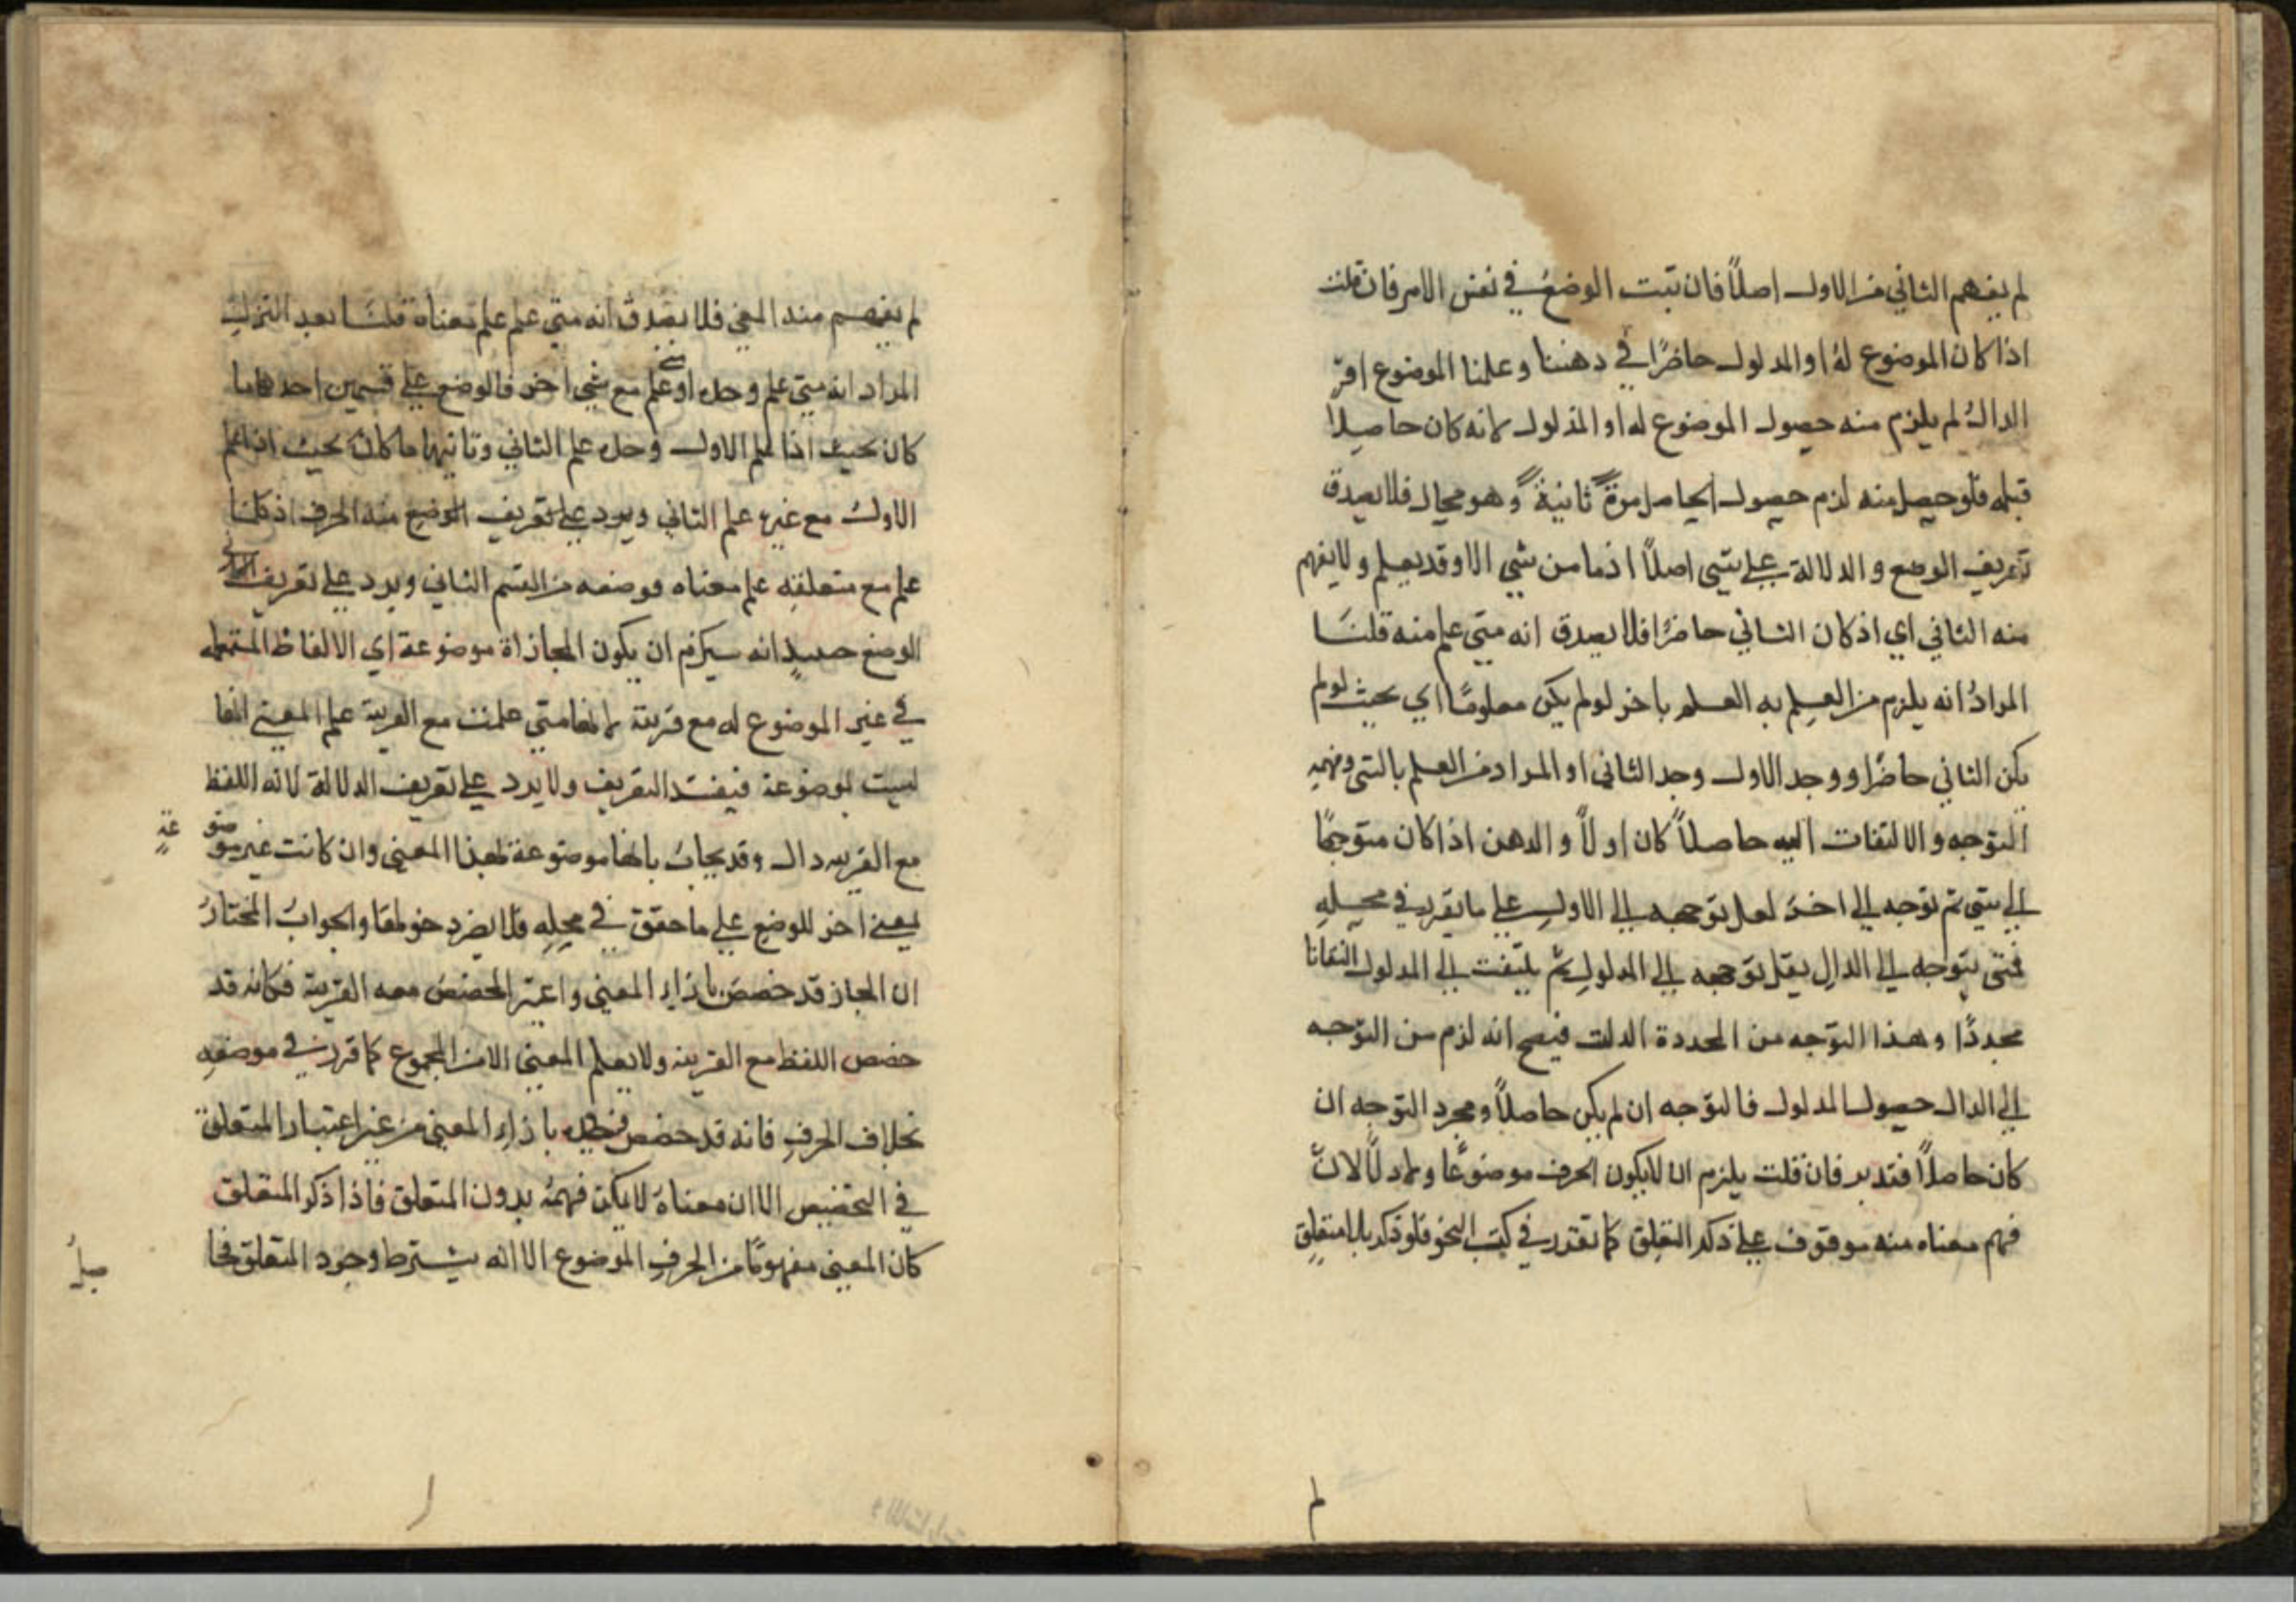 لم يفهم الثاني من الاول اصلاً فان ثبت الوضع في نفس الامر فان قلت
اذا كان الموضوع له او المدلول حاضرًا في ذهننا وعلمنا الموضوع او
الدال لم يلزم منه حصول الموضوع له او المدلول لانه كان حاصلا
قبله فلو حصل منه لزم حصول الحاصل مرةً ثانيةً وهو محال فلا يصدق
تعريف الوضع والدلالة على شي اصلاً اذ ما من شي الا وقد يعلم ولا يفهم
منه الثاني اي اذ كان الثاني حاضرًا فلا يصدق انه متى علم منه قلنا
المراد انه يلزم من العلم به العلم باخر لو لم يكن معلومًا اي بحيث لو لم
يكن الثاني حاضرا ووجد الاول وجد الثاني او المراد من العلم بالشي وفهمه
التوجه والالتفات اليه حاصلاً كان اولاً والذهن اذا كان متوجهًا
الى شي ثم توجه الى اخر توجهه الى الاول على ما يقرر في محله
فمتى يتوجه الى الدال توجهه الى المدلول ثم يلتفت الى المدلول التفاتا
مجددًا وهذا التوجه من فيصح انه لزم من التوجه
الى الدال حصول المدلول فالتوجه ان لم يكن حاصلاً ومجرد التوجه ان
كان حاصلاً فتدبر فان قلت يلزم ان لا يكون الحرف موضوعًا ولا دالا لانّ
فهم معناه منه موقوف على ذكر المتعلق كما تقرر في كتب النحو فلو ذكر بلا متعلق
لم
لم يفهم منه المعنى فلا يصدق انه متى علم علم معناه قلنا بعد التنزل
المراد انه متى علم وحده او علم مع شي اخر فالوضع على قسمين احدهما ما
كان بحيث اذا علم الاول وحده علم الثاني وثانيهما ما كان بحيث اذا علم
الاول مع غيره علم الثاني ويرد على تعريف الوضع منه الحرف اذ كلما
علم مع متعلقه علم معناه فوضعه من القسم الثاني ويرد على تعريف
الوضع انه ان يكون المجازاة موضوعة اي الالفاظ المستعمله
في غير الموضوع له مع قرينة لانها متى علمت مع القرينة علم المعنى انها
ليست بموضوعة فيفسد التعريف ولا يرد على تعريف الدلالة لانه اللفظ
مع القرينه دال وقد يجاب بانها موضوعة لهذا المعنى وان كانت غير موضوعة
بمعنى اخر للوضع على ما حقق في محله فلا يضر دخولها والجواب المختارُ
ان المجاز قد خصص بازاء المعنى واعتبر المخصص معه القرينة فكانه قد
خصص اللفظ مع القرينه ولا يعلم المعنى الا من المجموع كما قرر في موضعه
بخلاف الحرف فانه قد خصص وحده بازاء المعنى من غير اعتبار المتعلق
في التخصيص الا ان معناه لا يمكن فهمه بدون المتعلق فاذا ذكر المتعلق
كان المعنى مفهومًا من الحرف الموضوع الا انه يشترط وجود المتعلق